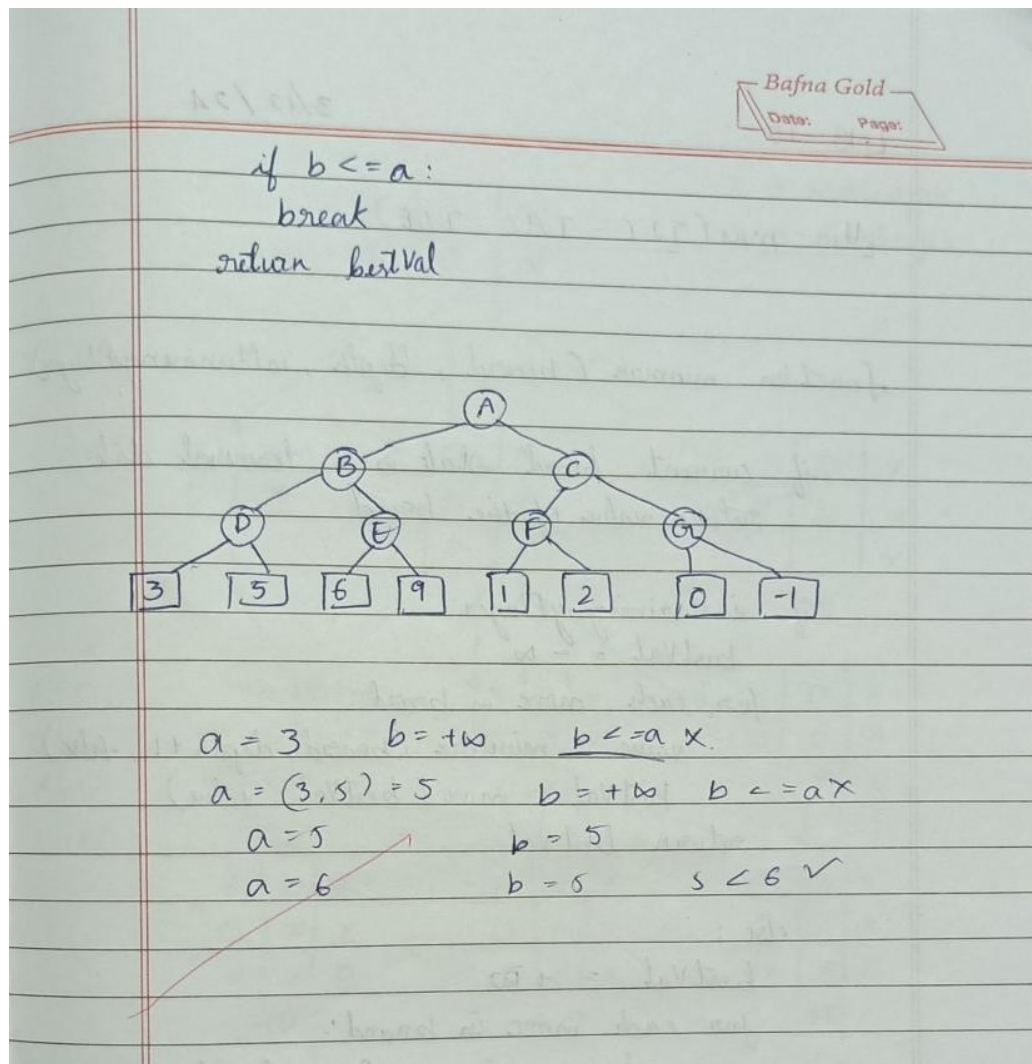 Bafna Gold
Date: Page:
if b <= a:
break
return bestVal
A
B C
D E F G
3 5 6 9 1 2 0 -1
a = 3 b = +∞ b <= a x.
a = (3, 5) = 5 b = +∞ b <= a x
a = 5 b = 5
a = 6 b = 5 5 < 6 ✓